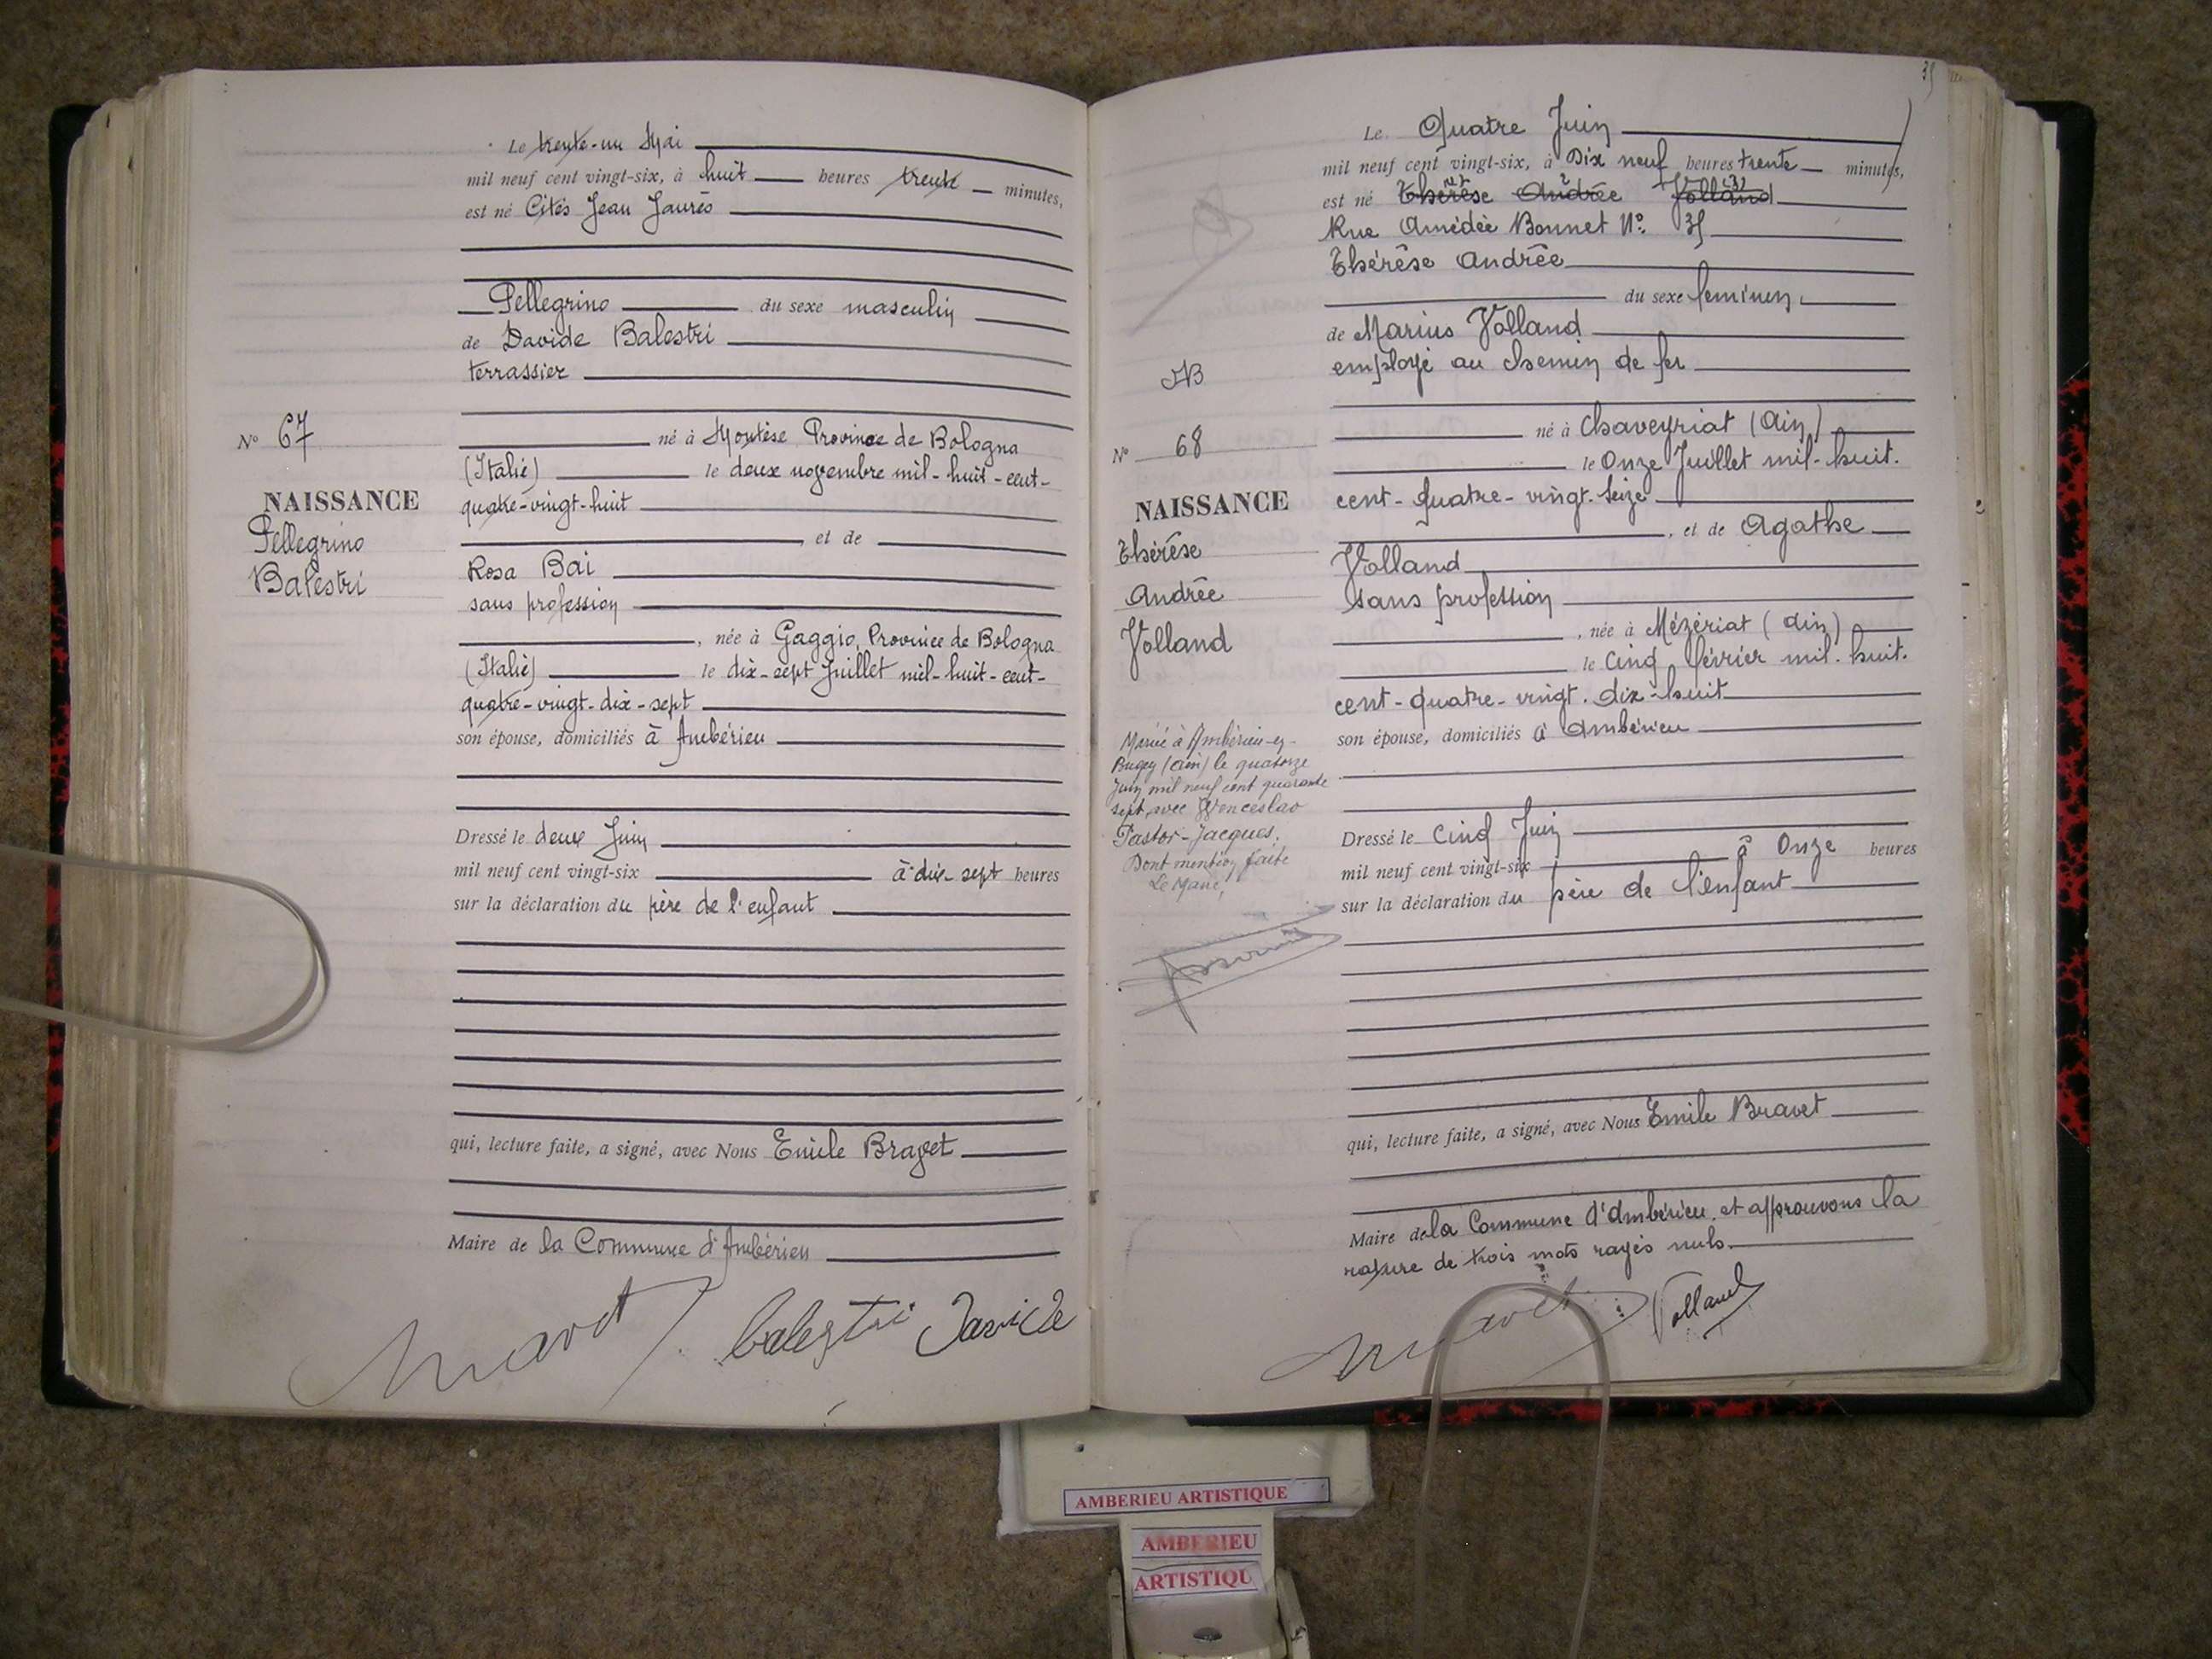 Le trente-un Mai
mil neuf cent vingt-six, à huit heures trente minutes,
est né Cités Jean Jaurès
Pellegrino du sexe masculin
de Davide Balestri
terrassier
N° 67
né à Montèse Province de Bologna
(Italie) le deux novembre mil-huit-cent-
NAISSANCE
quatre-vingt-huit
Pellegrino
et de
Balestri
Rosa Bai
sans profession
, née à Gaggio, Province de Bologna
(Italie) le dix-sept Juillet mil-huit-cent-
quatre-vingt-dix-sept
son épouse, domiciliés à Ambérieu
Dressé le deux Juin
mil neuf cent vingt-six à dix-sept heures
sur la déclaration du père de l'enfant
qui, lecture faite, a signé, avec Nous Emile Bravet
Maire de la Commune d'Ambérieu
Bravet balestri Davide
35
Le Quatre Juin
mil neuf cent vingt-six, à Dix neuf heures trente minutes,
est né Thérèse Andrée Volland
Rue Amédée Bonnet N° 35
Thérèse Andrée
du sexe feminin
de Marius Volland
employé au chemin de fer
N° 68
né à Chaveyriat (Ain)
le Onze Juillet mil-huit.
NAISSANCE
cent-quatre-vingt-seize
Thérèse
Andrée
Volland
, et de Agathe
Volland
sans profession
, née à Mézériat (Ain)
le Cinq février mil.huit.
cent-quatre-vingt.dix-huit
son épouse, domiciliés à Ambérieu
Mariée à Ambérieu-en-
Bugey (Ain) le quatorze
Juin mil neuf cent quarante
sept avec Wenceslao
Pastor-Jacques.
Dont mention faite
Le Maire,
Dressé le Cinq Juin
mil neuf cent vingt-six à Onze heures
sur la déclaration du père de l'enfant
qui, lecture faite, a signé, avec Nous Emile Bravet
Maire de la Commune d'Ambérieu. et approuvons la
rature de trois mots rayés nuls.
Bravet Volland
AMBERIEU ARTISTIQUE
AMBERIEU
ARTISTIQU